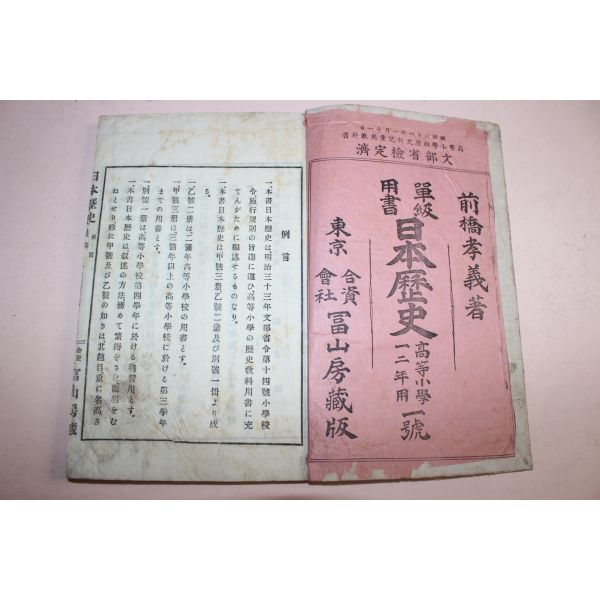 明治三十四年一月十一日
高等小學校歷史科兒童用敎科書
文部省檢定濟
前橋孝義著
單級用書
日本歷史
高等小學一二年用
一號
東京
合資會社
冨山房藏版
例言
一本書日本歷史は明治三十三年文部省令第十四號小學校
令施行規則の旨趣に遵ひ、高等小學の歷史敎科用書に充
てんがために編述せるものなり。
一本書日本歷史は、甲號三册乙號二册及び別號一册より成
る。
一乙號二册は、二箇年高等小學校の用書とす。
一甲號三册は、三箇年以上の高等小學校に於ける第三學年
までの用書とす。
一別號一册は、高等小學校第四學年に於ける補習用とす。
一本書日本歷史は、叙述の方法、務めて繁縟をさけ、簡明をむ
ねとせり。殊に甲號及び乙號の如きは、其題目直に名高き
日本歷史
例言
冨山房藏